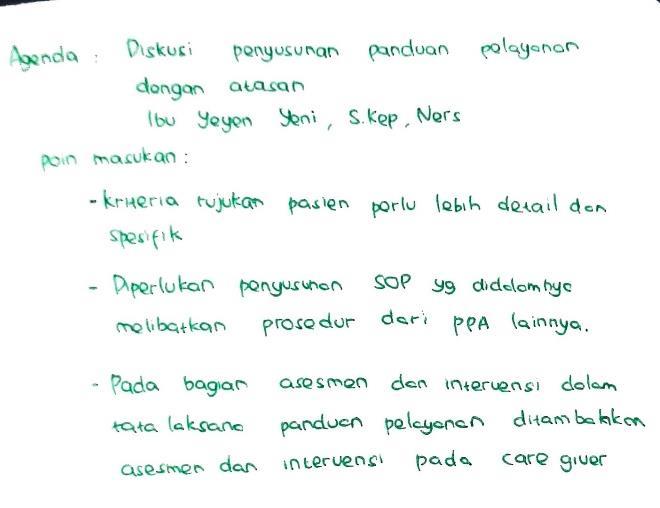 Agenda : Diskusi penyusunan panduan pelayanan
dengan atasan
Ibu Yeyen Yeni, S.Kep, Ners
poin masukan :
- kriteria rujukan pasien perlu lebih detail dan
spesifik
- Diperlukan penyusunan SOP yg didalamnya
melibatkan prosedur dari PPA lainnya.
- Pada bagian asesmen dan intervensi dalam
tata laksana panduan pelayanan ditambahkan
asesmen dan intervensi pada care giver